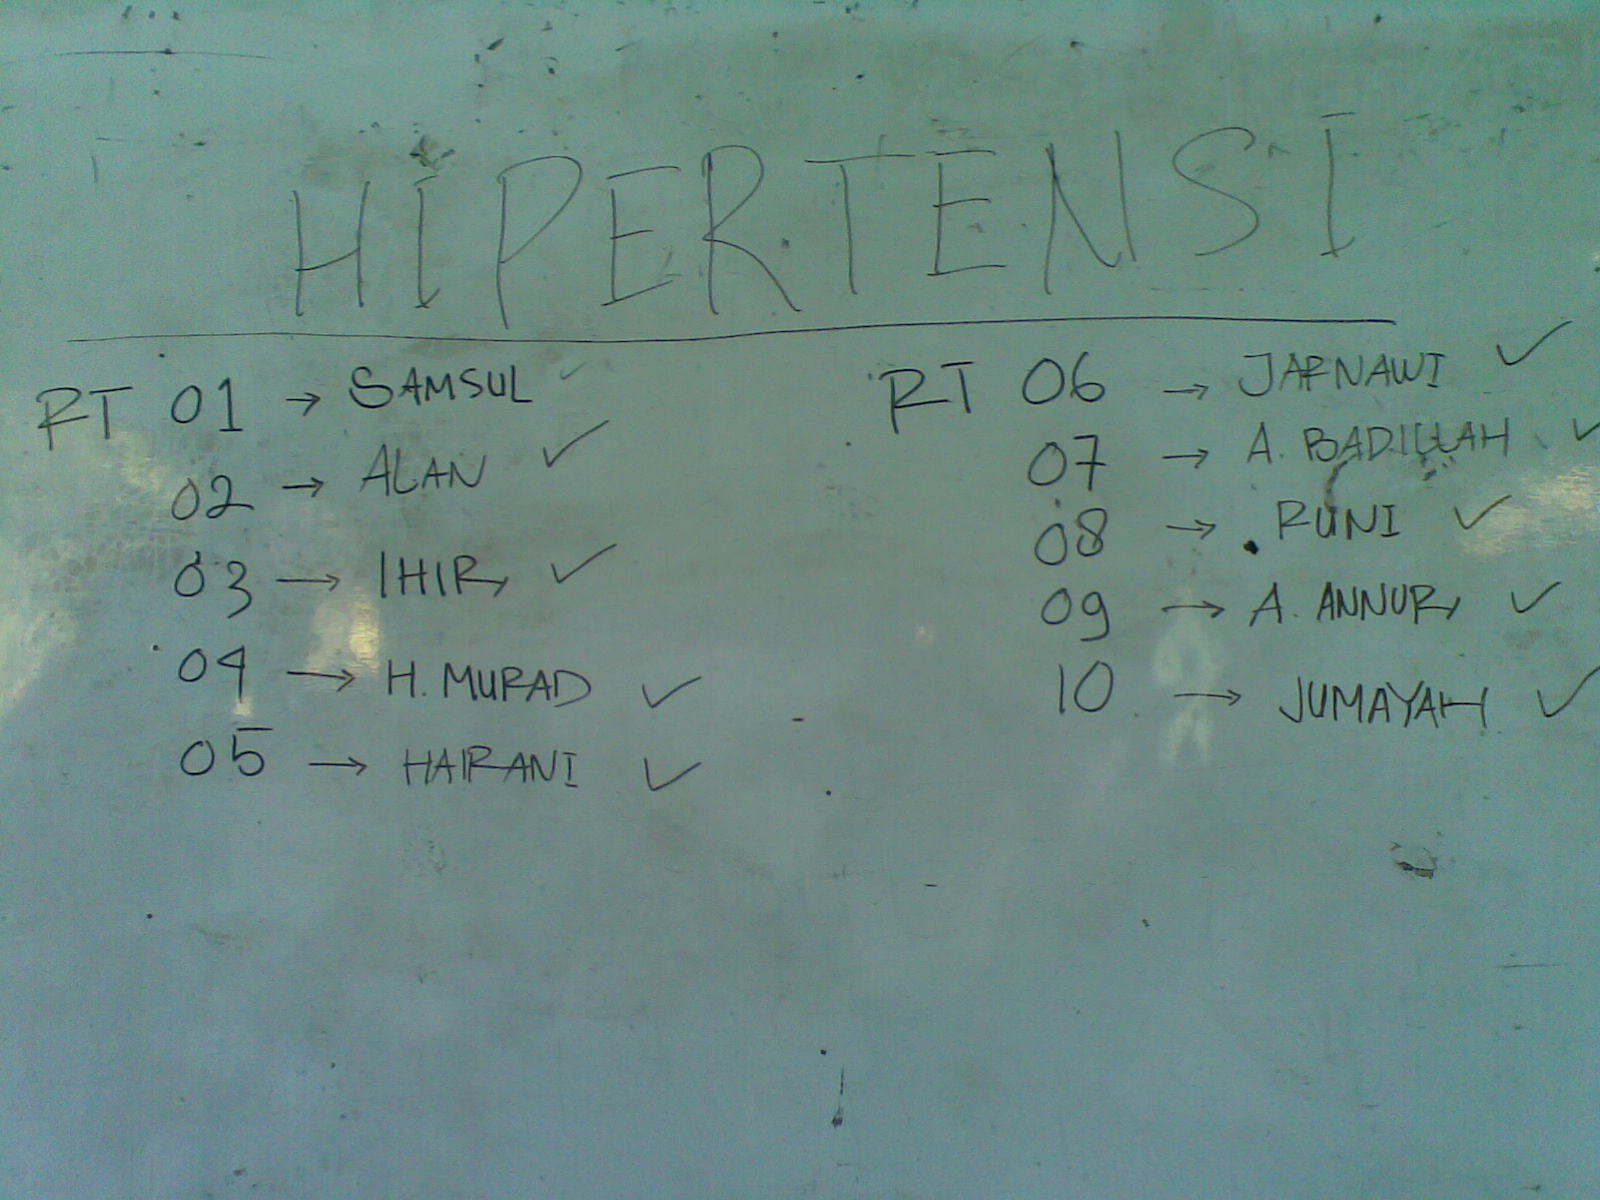 HIPERTENSI
RT 01 → SAMSUL ✓
02 → ALAN ✓
03 → IHIR ✓
04 → H. MURAD ✓
05 → HAIRANI ✓
RT 06 → JARNAWI ✓
07 → A. BADILLAH ✓
08 → RUNI ✓
09 → A. ANNUR ✓
10 → JUMAYAH ✓